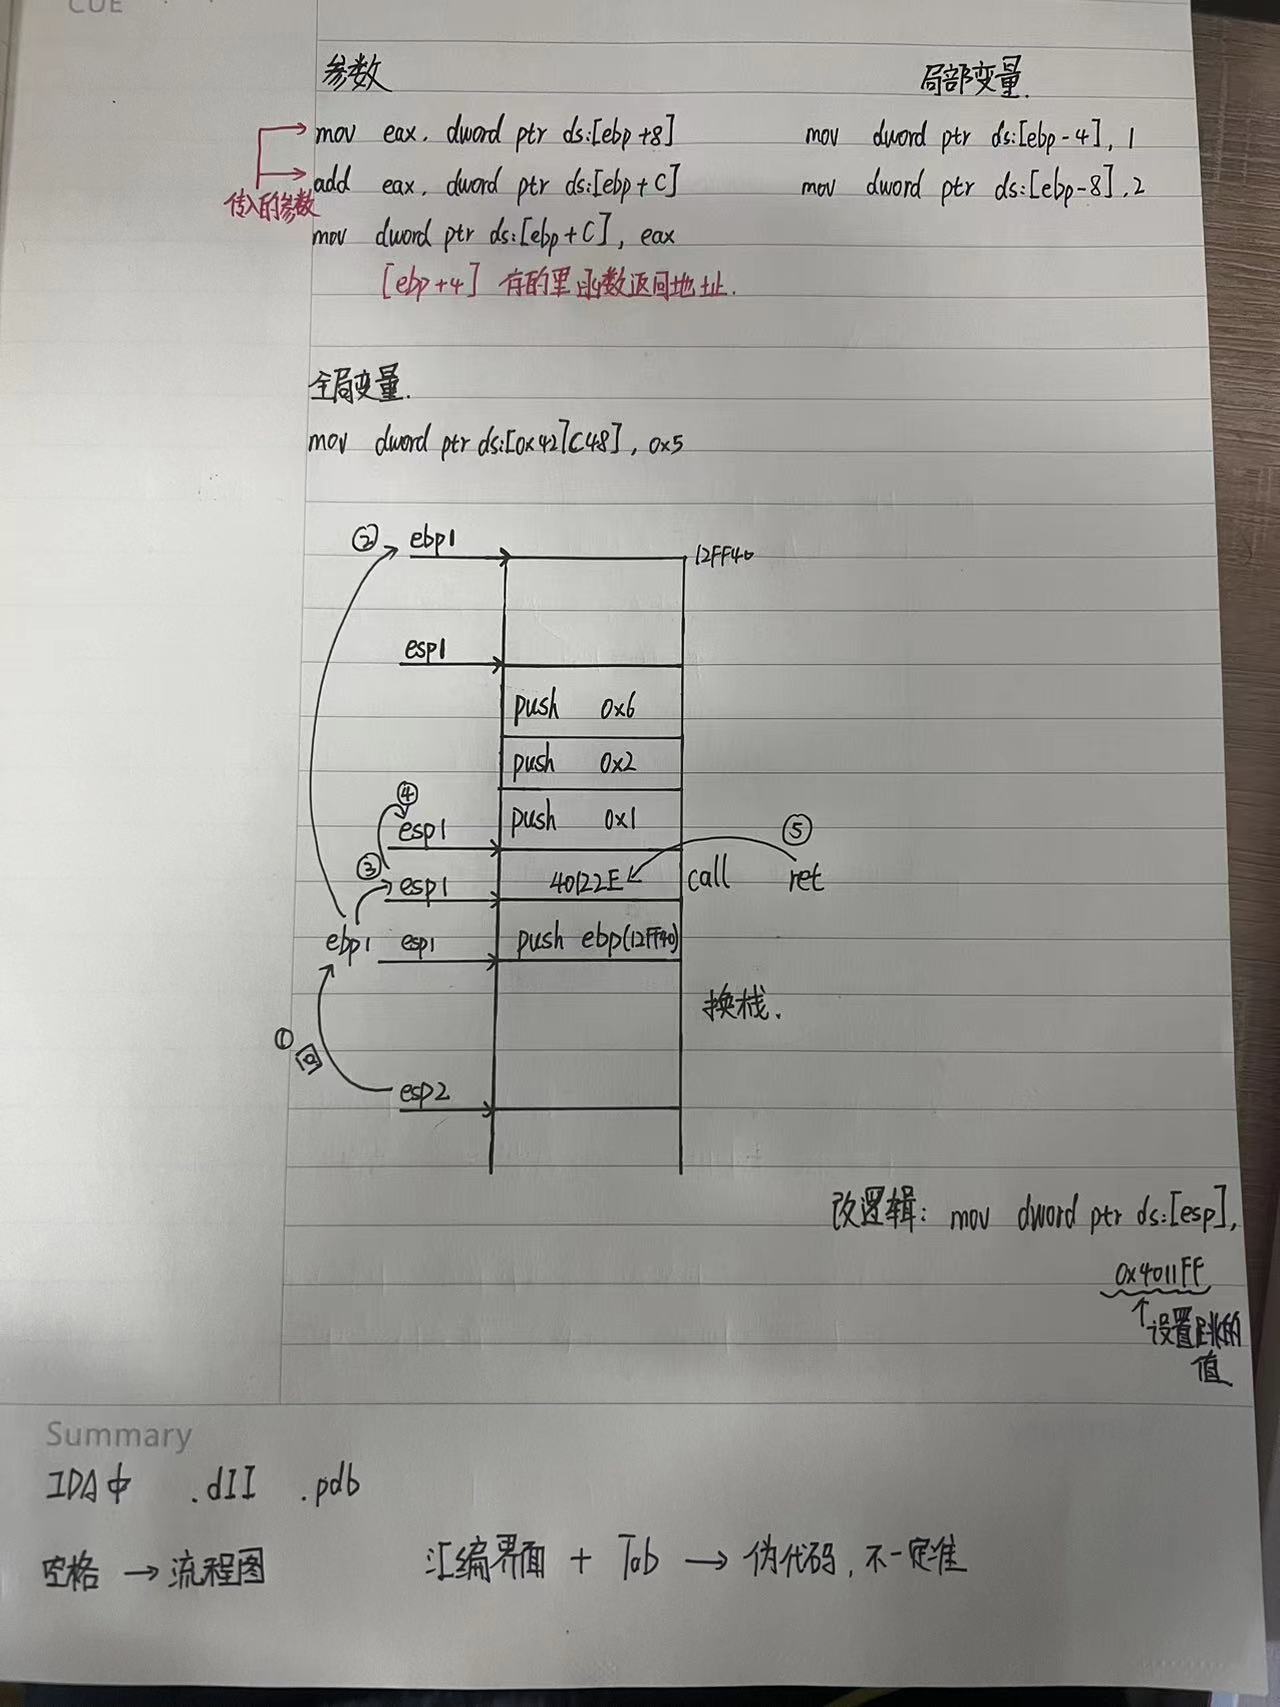 CUE
参数
局部变量.
mov eax, dword ptr ds:[ebp+8]
mov dword ptr ds:[ebp-4], 1
add eax, dword ptr ds:[ebp+C]
mov dword ptr ds:[ebp-8], 2
传入的参数
mov dword ptr ds:[ebp+C], eax
[ebp+4] 存的是函数返回地址.
全局变量.
mov dword ptr ds:[0x427C48], 0x5
② ebp1
12FF40
esp1
push 0x6
push 0x2
④
esp1
push 0x1
⑤
③
esp1
40122E
call
ret
ebp1
esp1
push ebp(12FF40)
换栈.
① 回
esp2
改逻辑: mov dword ptr ds:[esp],
0x4011FF
设置跳的
值
Summary
IDA中 .dll .pdb
空格 → 流程图
汇编界面 + Tab → 伪代码, 不一定准